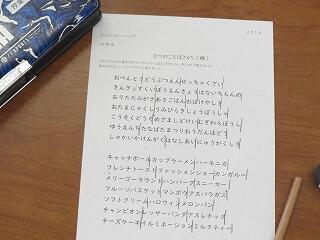 ビジョントレーニング
中学年
3つのことばさがし(横)
おべんとうどうぶつえんせっちゃくざい
さんぎょすくいぼうえんきょうはないちもんめ
おりたたみがさあさごはんおばけやしき
おたまじゃくしうみびらきしょうぼうしゃ
こうそくどうろめざましどけいむぎわらぼうし
ゆうえんちたなばたまつりおうだんほどう
しゃかいかけんがくはなしあいにゅうがくしき
キャッチボールカップラーメンハーモニカ
フレンチトーストファッションショーカンガルー
メリーゴーラウンドハンバーグスニーカー
フルーツバスケットマンボウアスパラガス
ソフトクリームハロウィンメロンパン
チャンピオンレッサーパンダアスレチック
チーズケーキイルミネーションミルクティー